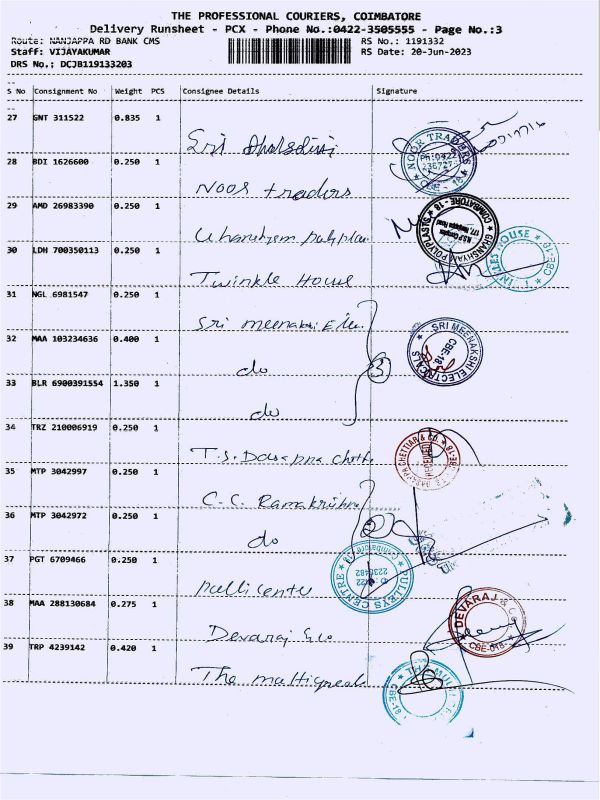 THE PROFESSIONAL COURIERS, COIMBATORE
Delivery Runsheet - PCX - Phone No.:0422-3505555 - Page No.:3
Route: NANJAPPA RD BANK CMS RS No.: 1191332
Staff: VIJAYAKUMAR RS Date: 20-Jun-2023
DRS No.: DCJB119133203
S No Consignment No Weight PCS Consignee Details Signature
27 GNT 311522 0.835 1
Sri
28 BDI 1626600 0.250 1
Noor traders
NOOR TRADERS
Ph:0422
29 AMD 26983390 0.250 1
GHANSHYAM POLYPLASTS
COIMBATORE - 18
30 LDH 700350113 0.250 1
Twinkle House
HOUSE
CBE-18
31 NGL 6981547 0.250 1
Sri meenakshi Ele
32 MAA 103234636 0.400 1
do
3
SRI MEENAKSHI ELECTRICALS
CBE-18
33 BLR 6900391554 1.350 1
do
34 TRZ 210006919 0.250 1
T.S. Dasappa
DASAPPA CHETTIAR & CO.
RECEIVED
35 MTP 3042997 0.250 1
C.C. Ramakrishna
36 MTP 3042972 0.250 1
do
2
37 PGT 6709466 0.250 1
PULLEYS CENTRE
Coimbatore
38 MAA 288130684 0.275 1
Devaraj & co
DEVARAJ & CO
39 TRP 4239142 0.420 1
The
CBE-18